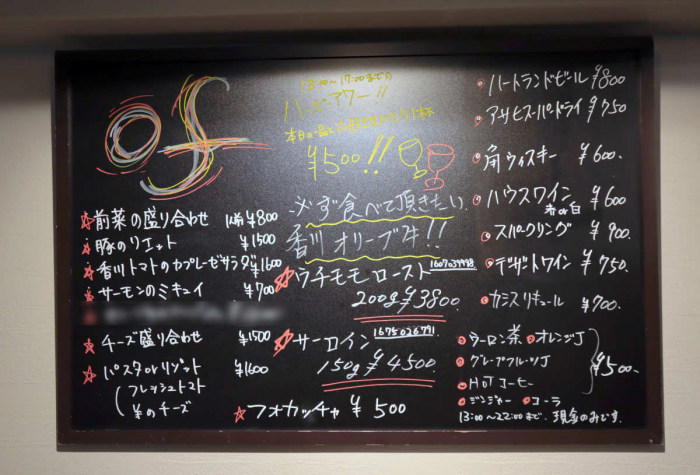 of
☆前菜の盛り合わせ 1人前 ¥800
☆豚のリエット ¥1500
☆香川トマトのカプレーゼサラダ ¥1600
☆サーモンのミキュイ ¥700
☆チーズ盛り合わせ ¥1500
☆パスタorリゾット ¥1600
フレッシュトマト
のチーズ
13:00~17:00までの
ハッピーアワー!!
¥500!!
必ず食べて頂きたい
香川オリーブ牛!!
☆ウチモモロースト 1607039998
200g ¥3800
☆サーロイン 1675026791
150g ¥4500
☆フォカッチャ ¥500
ハートランドビール ¥800
アサヒスーパードライ ¥750
角ウィスキー ¥600.
ハウスワイン ¥600
赤or白
スパークリング ¥900.
デザートワイン ¥750.
カシスリキュール ¥700.
ウーロン茶 オレンジJ
グレープフルーツJ
HOTコーヒー
ジンジャー コーラ
¥500.
13:00~22:00まで. 現金のみです.